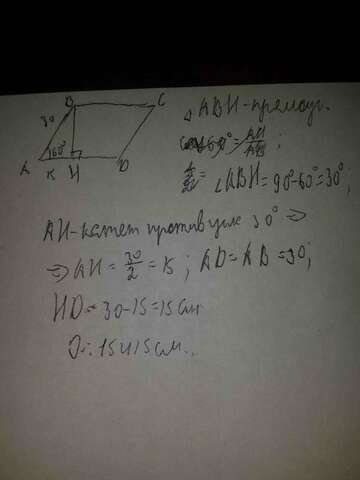 B C
30
60°
A K H D
△ABH-прямоуг.
cos60°=AH/AB;
∠ABH=90°-60°=30°,
AH-катет против угла 30° =>
=> AH=30/2=15; AD=AB=30;
HD=30-15=15см
O.:15и15см.